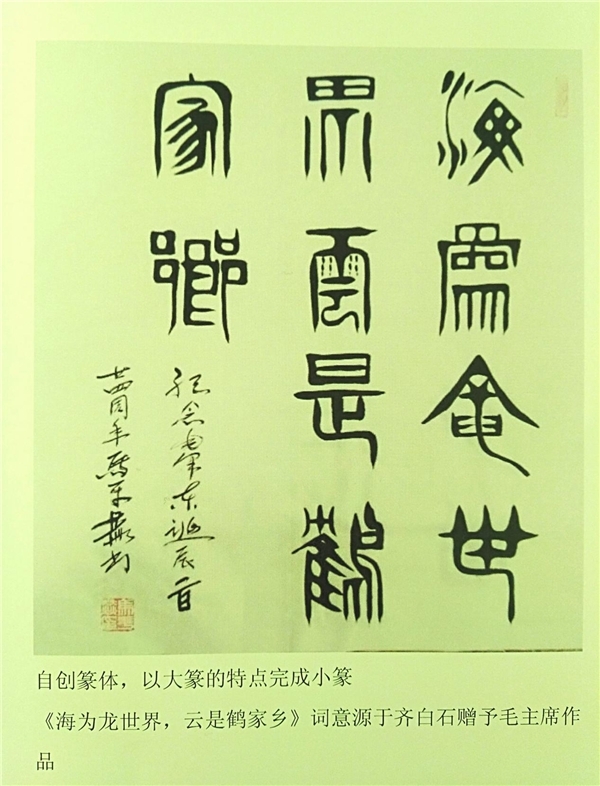 海為龍世
界雲是鶴
家鄉
纪念毛泽东诞辰百
廿四周年
自创篆体，以大篆的特点完成小篆
《海为龙世界，云是鹤家乡》词意源于齐白石赠予毛主席作
品